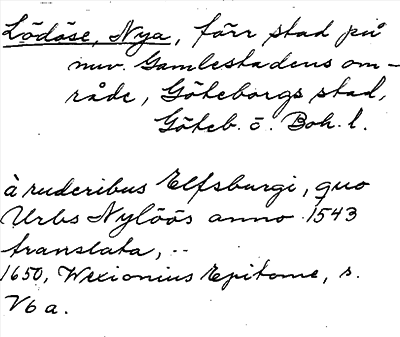 Lödöse, Nya, förr stad på
nuv. Gamlestadens om-
råde, Göteborgs stad,
Göteb. o. Boh. l.
à ruderibus Elfsburgi, quo
Urbs Nylöös anno 1543
translata, --
1650, Wexionius Epitome, s.
V6 a.